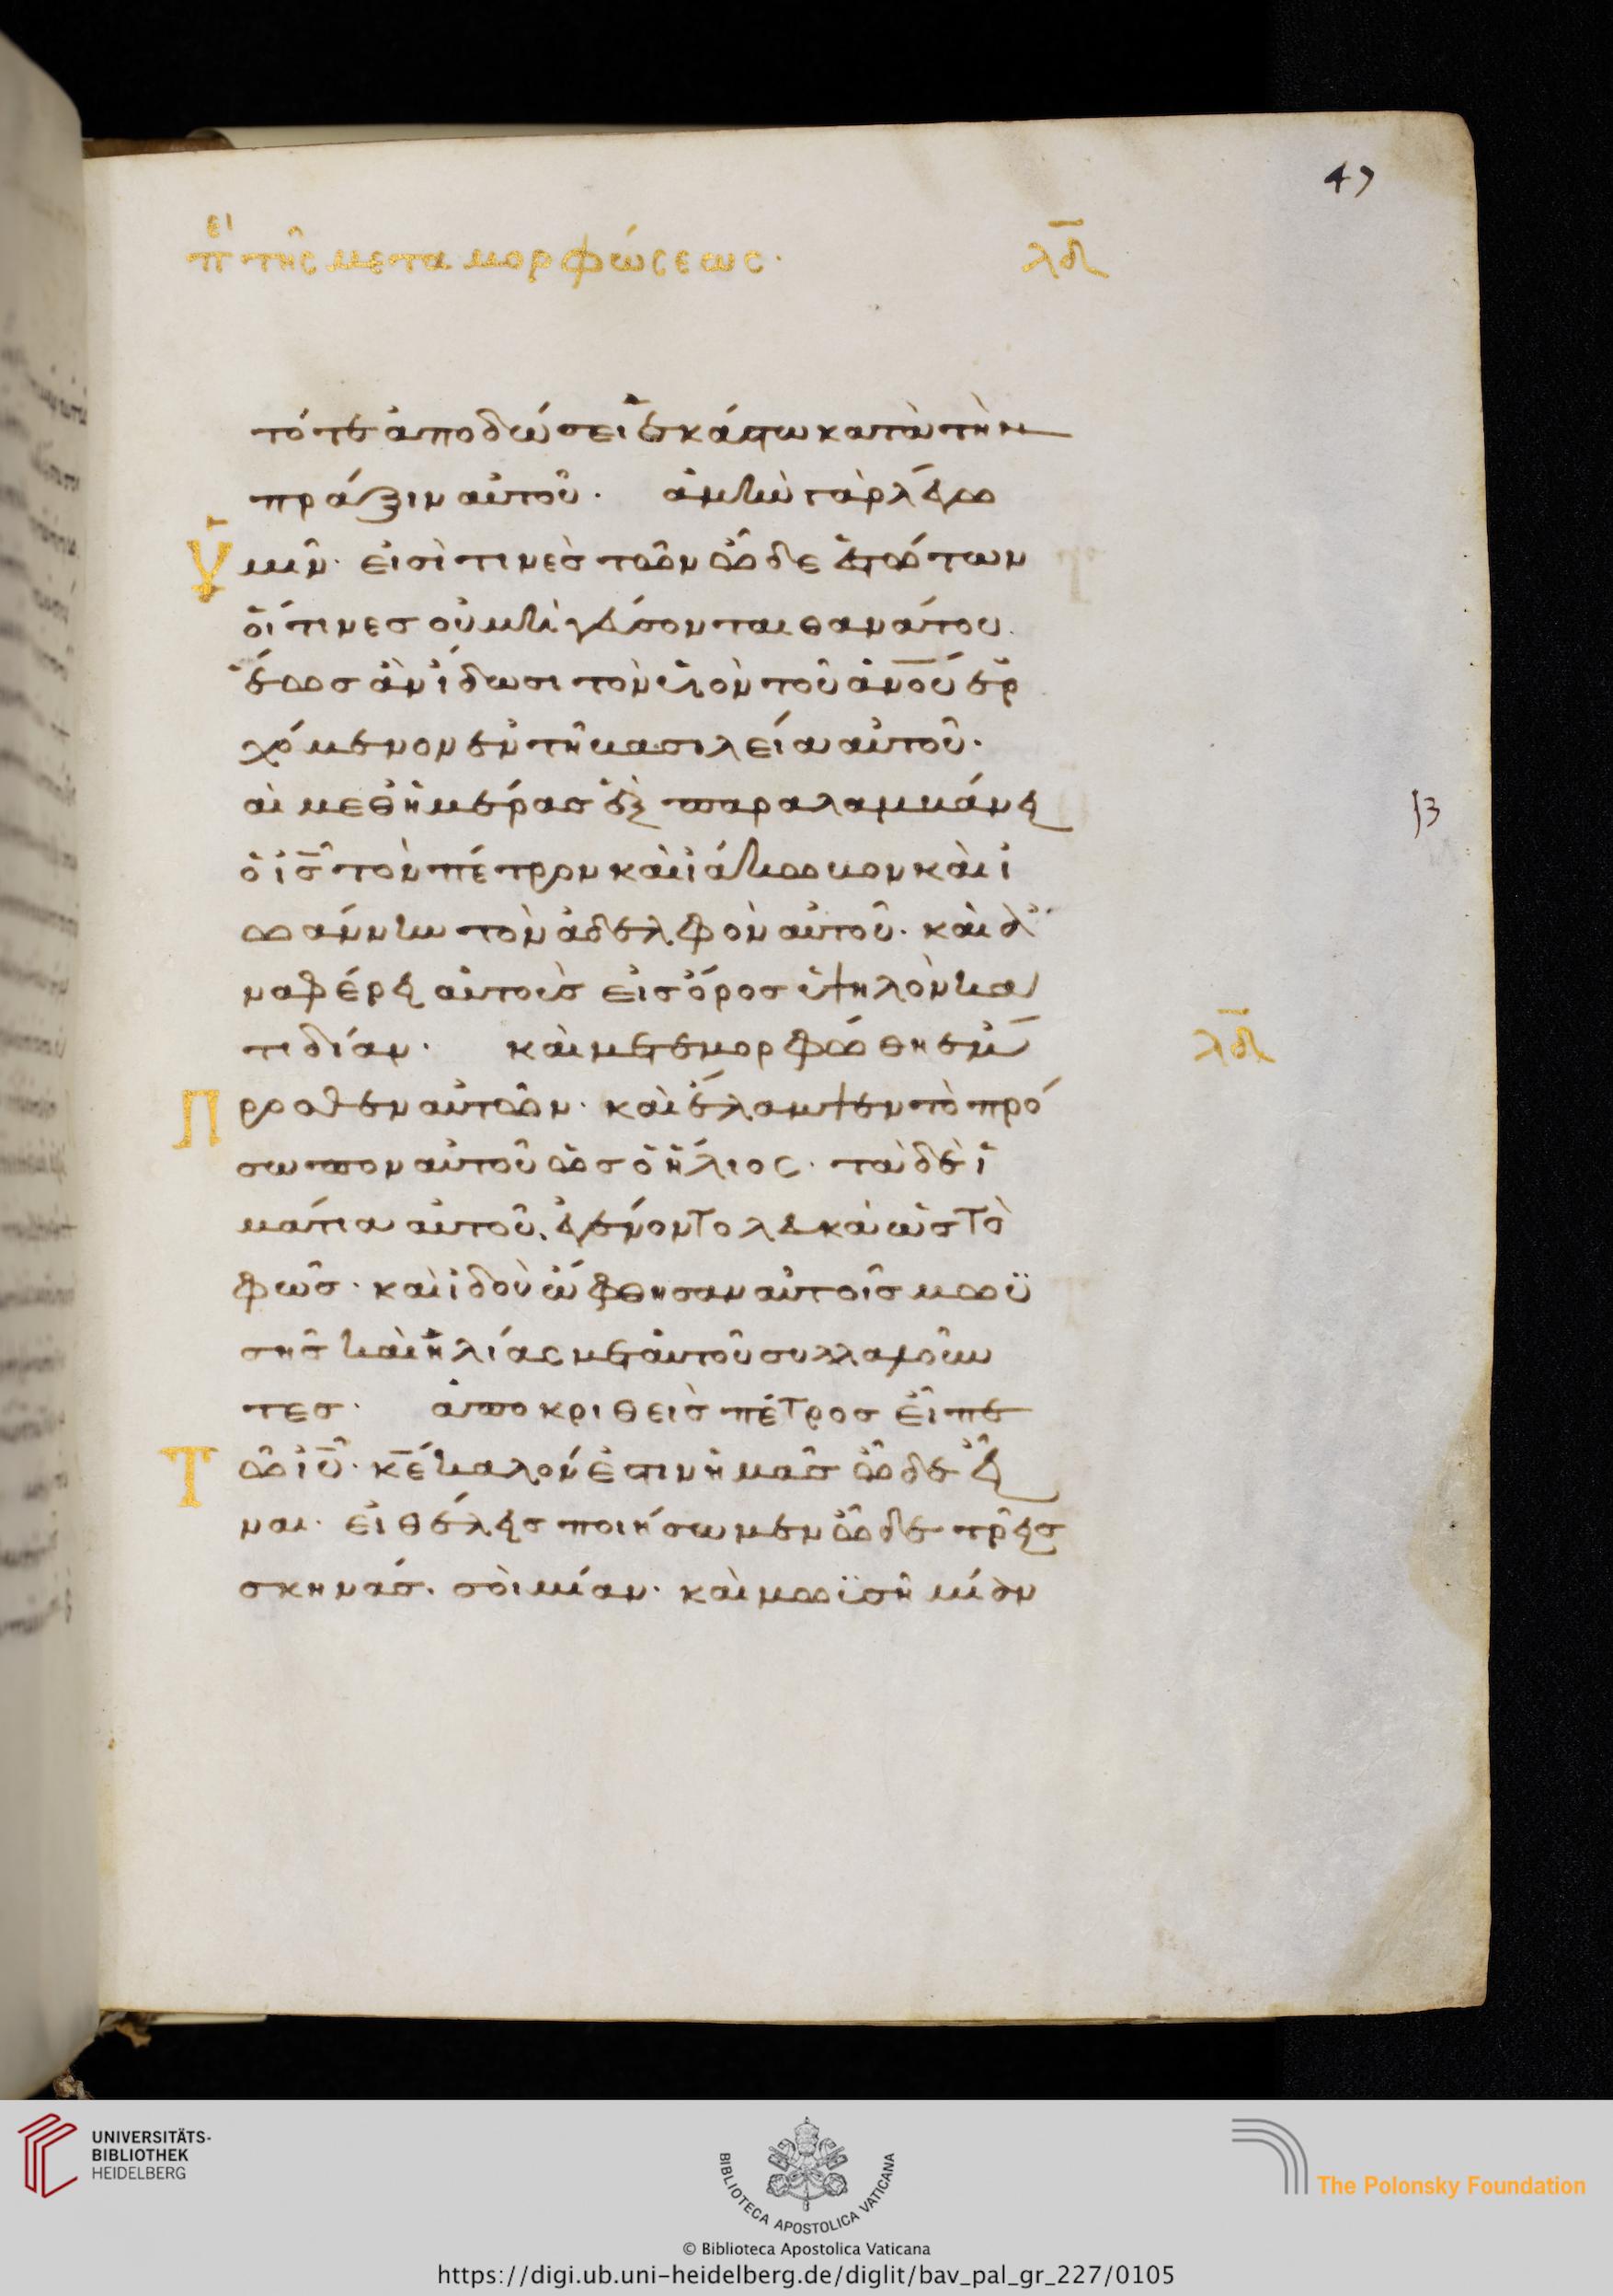 47
περὶ τῆς μεταμορφώσεως· λ̅δ̅
τότε ἀποδώσει ἑκάστω κατὰ τὴν
πρᾶξιν αὐτοῦ· ἀμὴν γὰρ λέγω
Ὑμῖν· εἰσί τινὲσ τῶν ὧδε ἑστώτων
οἵτινεσ οὐ μὴ γεύσονται θανάτου·
ἕωσ ἂν ἴδωσι τὸν υἱὸν τοῦ ἀν̅ο̅υ̅ ἐρ
χόμενον ἐν τῆ βασιλεία αὐτοῦ·
αὶ μεθ ἡμέρασ ἓξ παραλαμβάνει
ὁ ι̅σ̅ τὸν πέτρον καὶ ἰάκωβον καὶ ἰ
ωάννην τὸν ἀδελφὸν αὐτοῦ· καὶ ἀ
ναφέρει αὐτοὺσ εἰσ ὄροσ ὑψηλὸν κα
τιδίαν· καὶ μετεμορφώθη ἔμ λ̅δ̅
Προσθεν αὐτῶν· καὶ ἔλαμψεν τὸ πρό
σωπον αὐτοῦ ὡσ ὁ ἥλιος· τὰ δὲ ἱ
μάτια αὐτοῦ, ἐγένοντο λευκὰ ὡς τὸ
φῶσ· καὶ ἰδοὺ ὤφθησαν αὐτοῖσ μωϋ
σῆσ καὶ ἠλίας μετ αὐτοῦ συλλαλοῦν
τεσ· ἀποκριθεὶσ πέτροσ εἶπε
Τῶ ι̅υ̅· κ̅ε̅ καλόν ἐστιν ἡμᾶσ ὧδε εἶ
ναι· εἰ θέλεισ ποιήσωμεν ὧδε τρεῖσ
σκηνάσ· σοὶ μίαν· καὶ μωϋσῆ μίαν
UNIVERSITÄTS-
BIBLIOTHEK
HEIDELBERG
BIBLIOTECA APOSTOLICA VATICANA
The Polonsky Foundation
© Biblioteca Apostolica Vaticana
https://digi.ub.uni-heidelberg.de/diglit/bav_pal_gr_227/0105